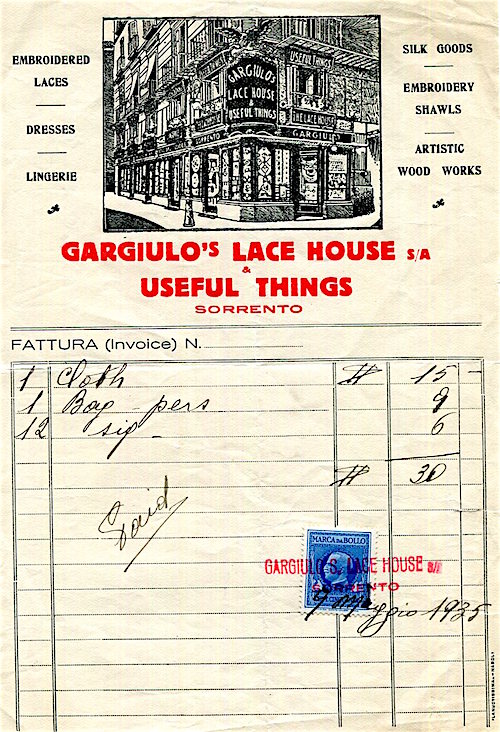 EMBROIDERED
LACES
DRESSES
LINGERIE
GARGIULO'S
LACE HOUSE
&
USEFUL THINGS
USEFUL THINGS
THE LACE HOUSE
GARGIULO
SILK GOODS
EMBROIDERY
SHAWLS
ARTISTIC
WOOD WORKS
GARGIULO'S LACE HOUSE S/A
&
USEFUL THINGS
SORRENTO
FATTURA (Invoice) N.
1 Cloth # 15 -
1 Bag - pers 9
12 sip - 6
# 30
Paid
MARCA DA BOLLO
GARGIULO'S LACE HOUSE S/A
SORRENTO
9 Maggio 1935